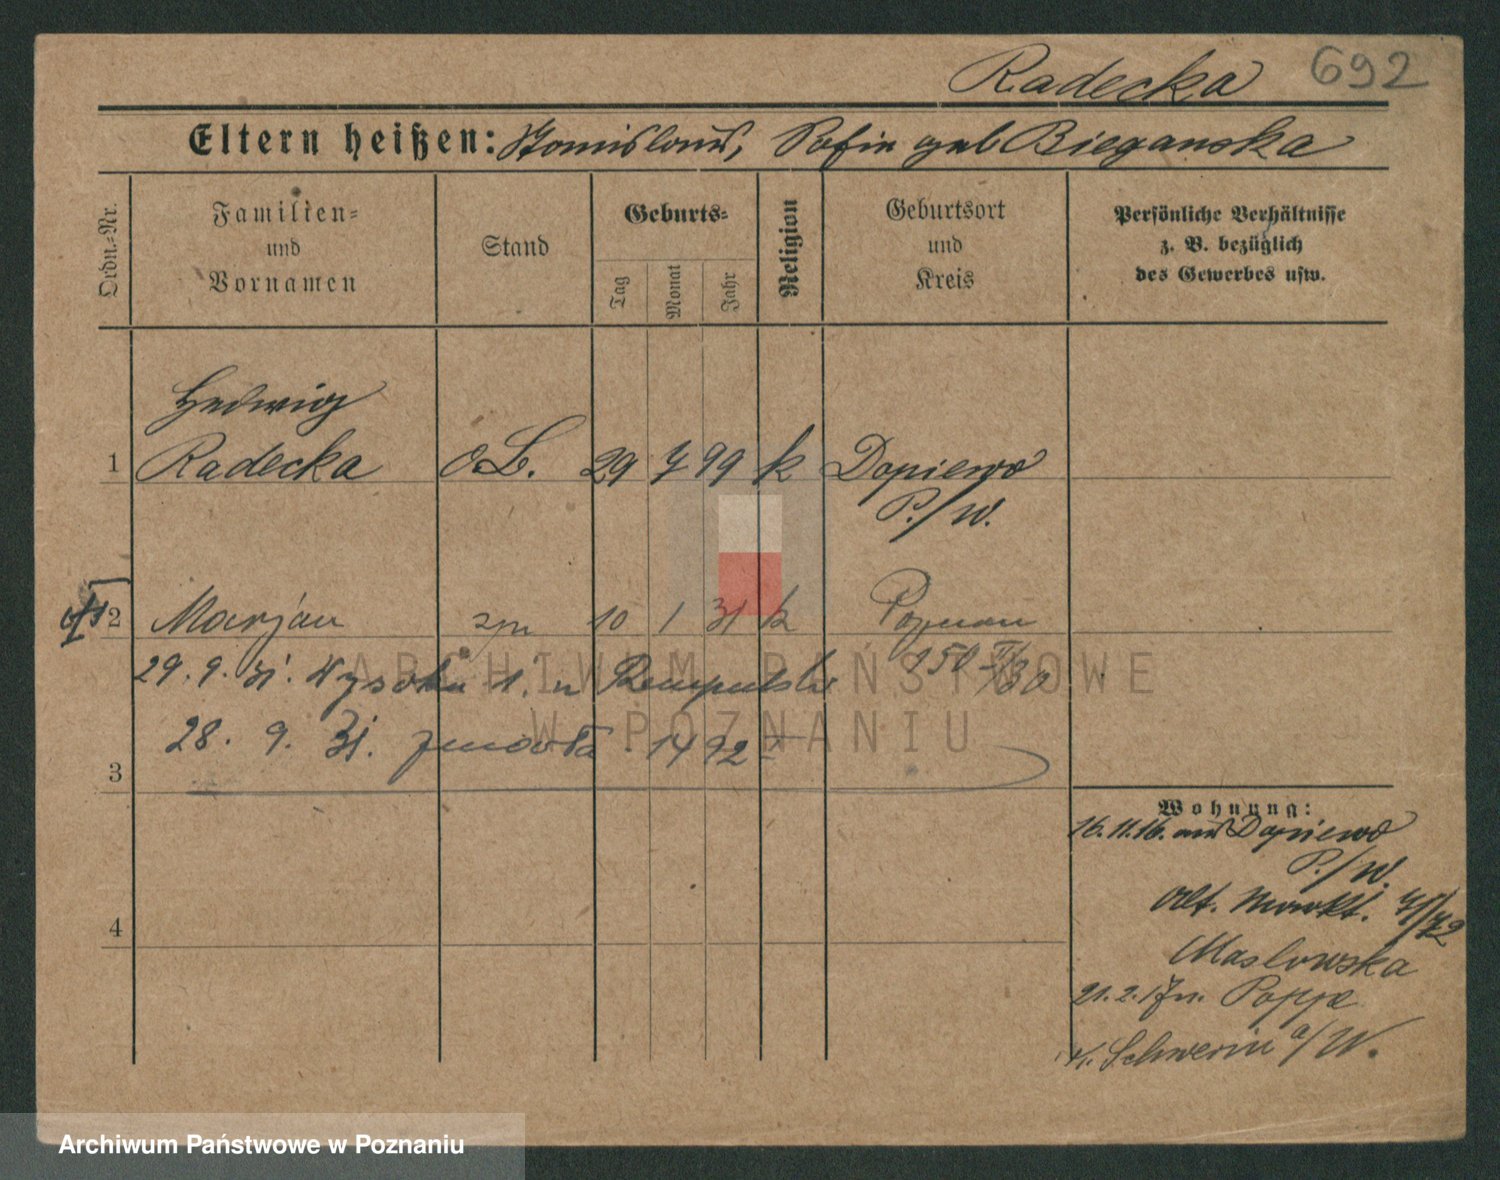 Radecka 692
Eltern heißen: Stanislaus, Sofie geb Bieganska
Ordn.-Nr.
Familien-
und
Vornamen
Stand
Geburts-
Tag
Monat
Jahr
Religion
Geburtsort
und
Kreis
Persönliche Verhältnisse
z. B. bezüglich
des Gewerbes usw.
Hedwig
1 Radecka oB. 29 7 99 k Dopiewo
P./W.
2 Marjan syn 10 1 31 k Poznan
150 II/30
29. 9. 31. Wysoka 1. u
28. 9. 31. zmarła 1492
3
Wohnung:
16.11.16. aus Dopiewo
P./W.
Alt. Markt. 71/72
4
Maslowska
21.2.17 n. Poppe
Schwerin a/W.
ARCHIWUM PAŃSTWOWE
W POZNANIU
Archiwum Państwowe w Poznaniu